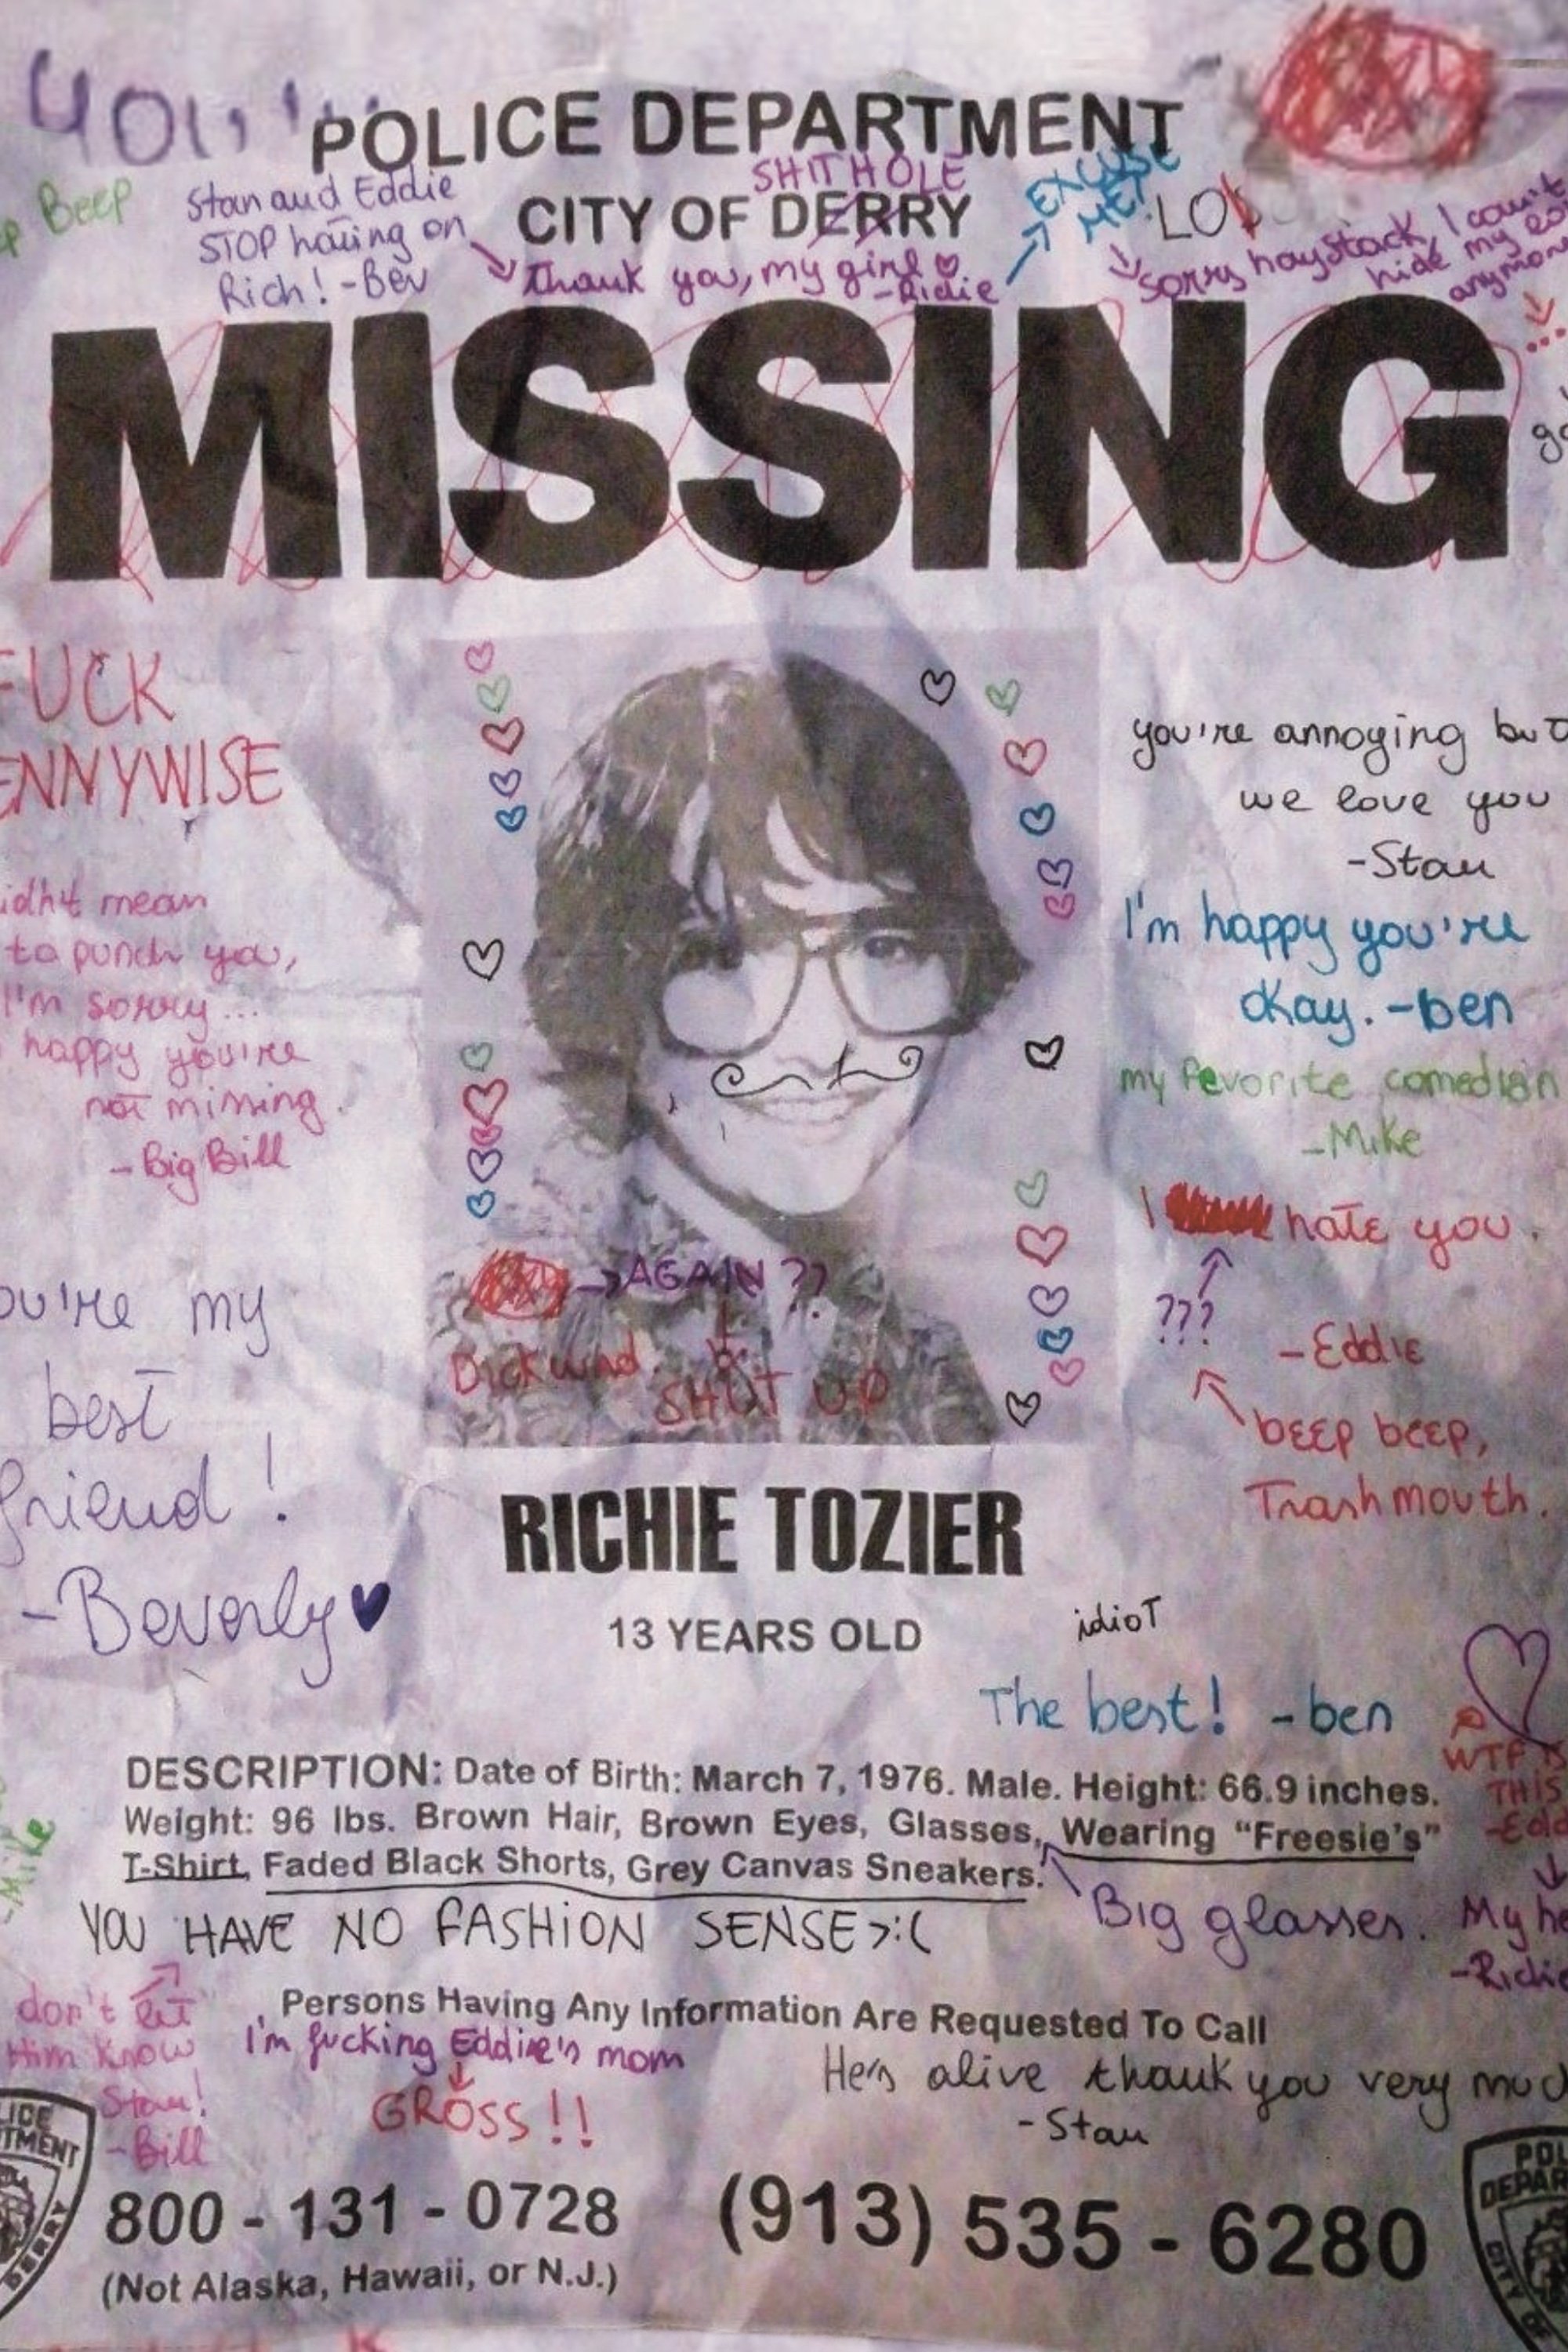 POLICE DEPARTMENT
Beep
Stan and Eddie
STOP hating on
Rich! -Bev
SHITHOLE
CITY OF DERRY
Thank you, my girl
-Richie
EXCUSE
ME?
Sorry haystack, I can't
hide my
MISSING
FUCK
ENNYWISE
idn't mean
to punch you,
I'm sorry...
happy you're
not missing.
-Big Bill
ou're my
best
friend!
-Beverly
you're annoying but
we love you
-Stan
I'm happy you're
okay. -ben
my fevorite comedian
-Mike
I hate you.
???
-Eddie
beep beep,
Trashmouth.
→AGAIN??
Dickwad.
SHUT UP
RICHIE TOZIER
13 YEARS OLD
idioT
The best! -ben
WTF IS
THIS
DESCRIPTION: Date of Birth: March 7, 1976. Male. Height: 66.9 inches.
Weight: 96 lbs. Brown Hair, Brown Eyes, Glasses, Wearing “Freesie's”
T-Shirt, Faded Black Shorts, Grey Canvas Sneakers.
-Mike
YOU HAVE NO FASHION SENSE>:(
Big glasses.
My
-Richie
don't let
Him know
Stan!
-Bill
Persons Having Any Information Are Requested To Call
I'm fucking Eddie's mom
GROSS!!
He's alive thank you very muc
-Stan
800 - 131 - 0728
(913) 535 - 6280
(Not Alaska, Hawaii, or N.J.)
LICE
TMENT
DERRY
POL
DEPAR
CITY OF